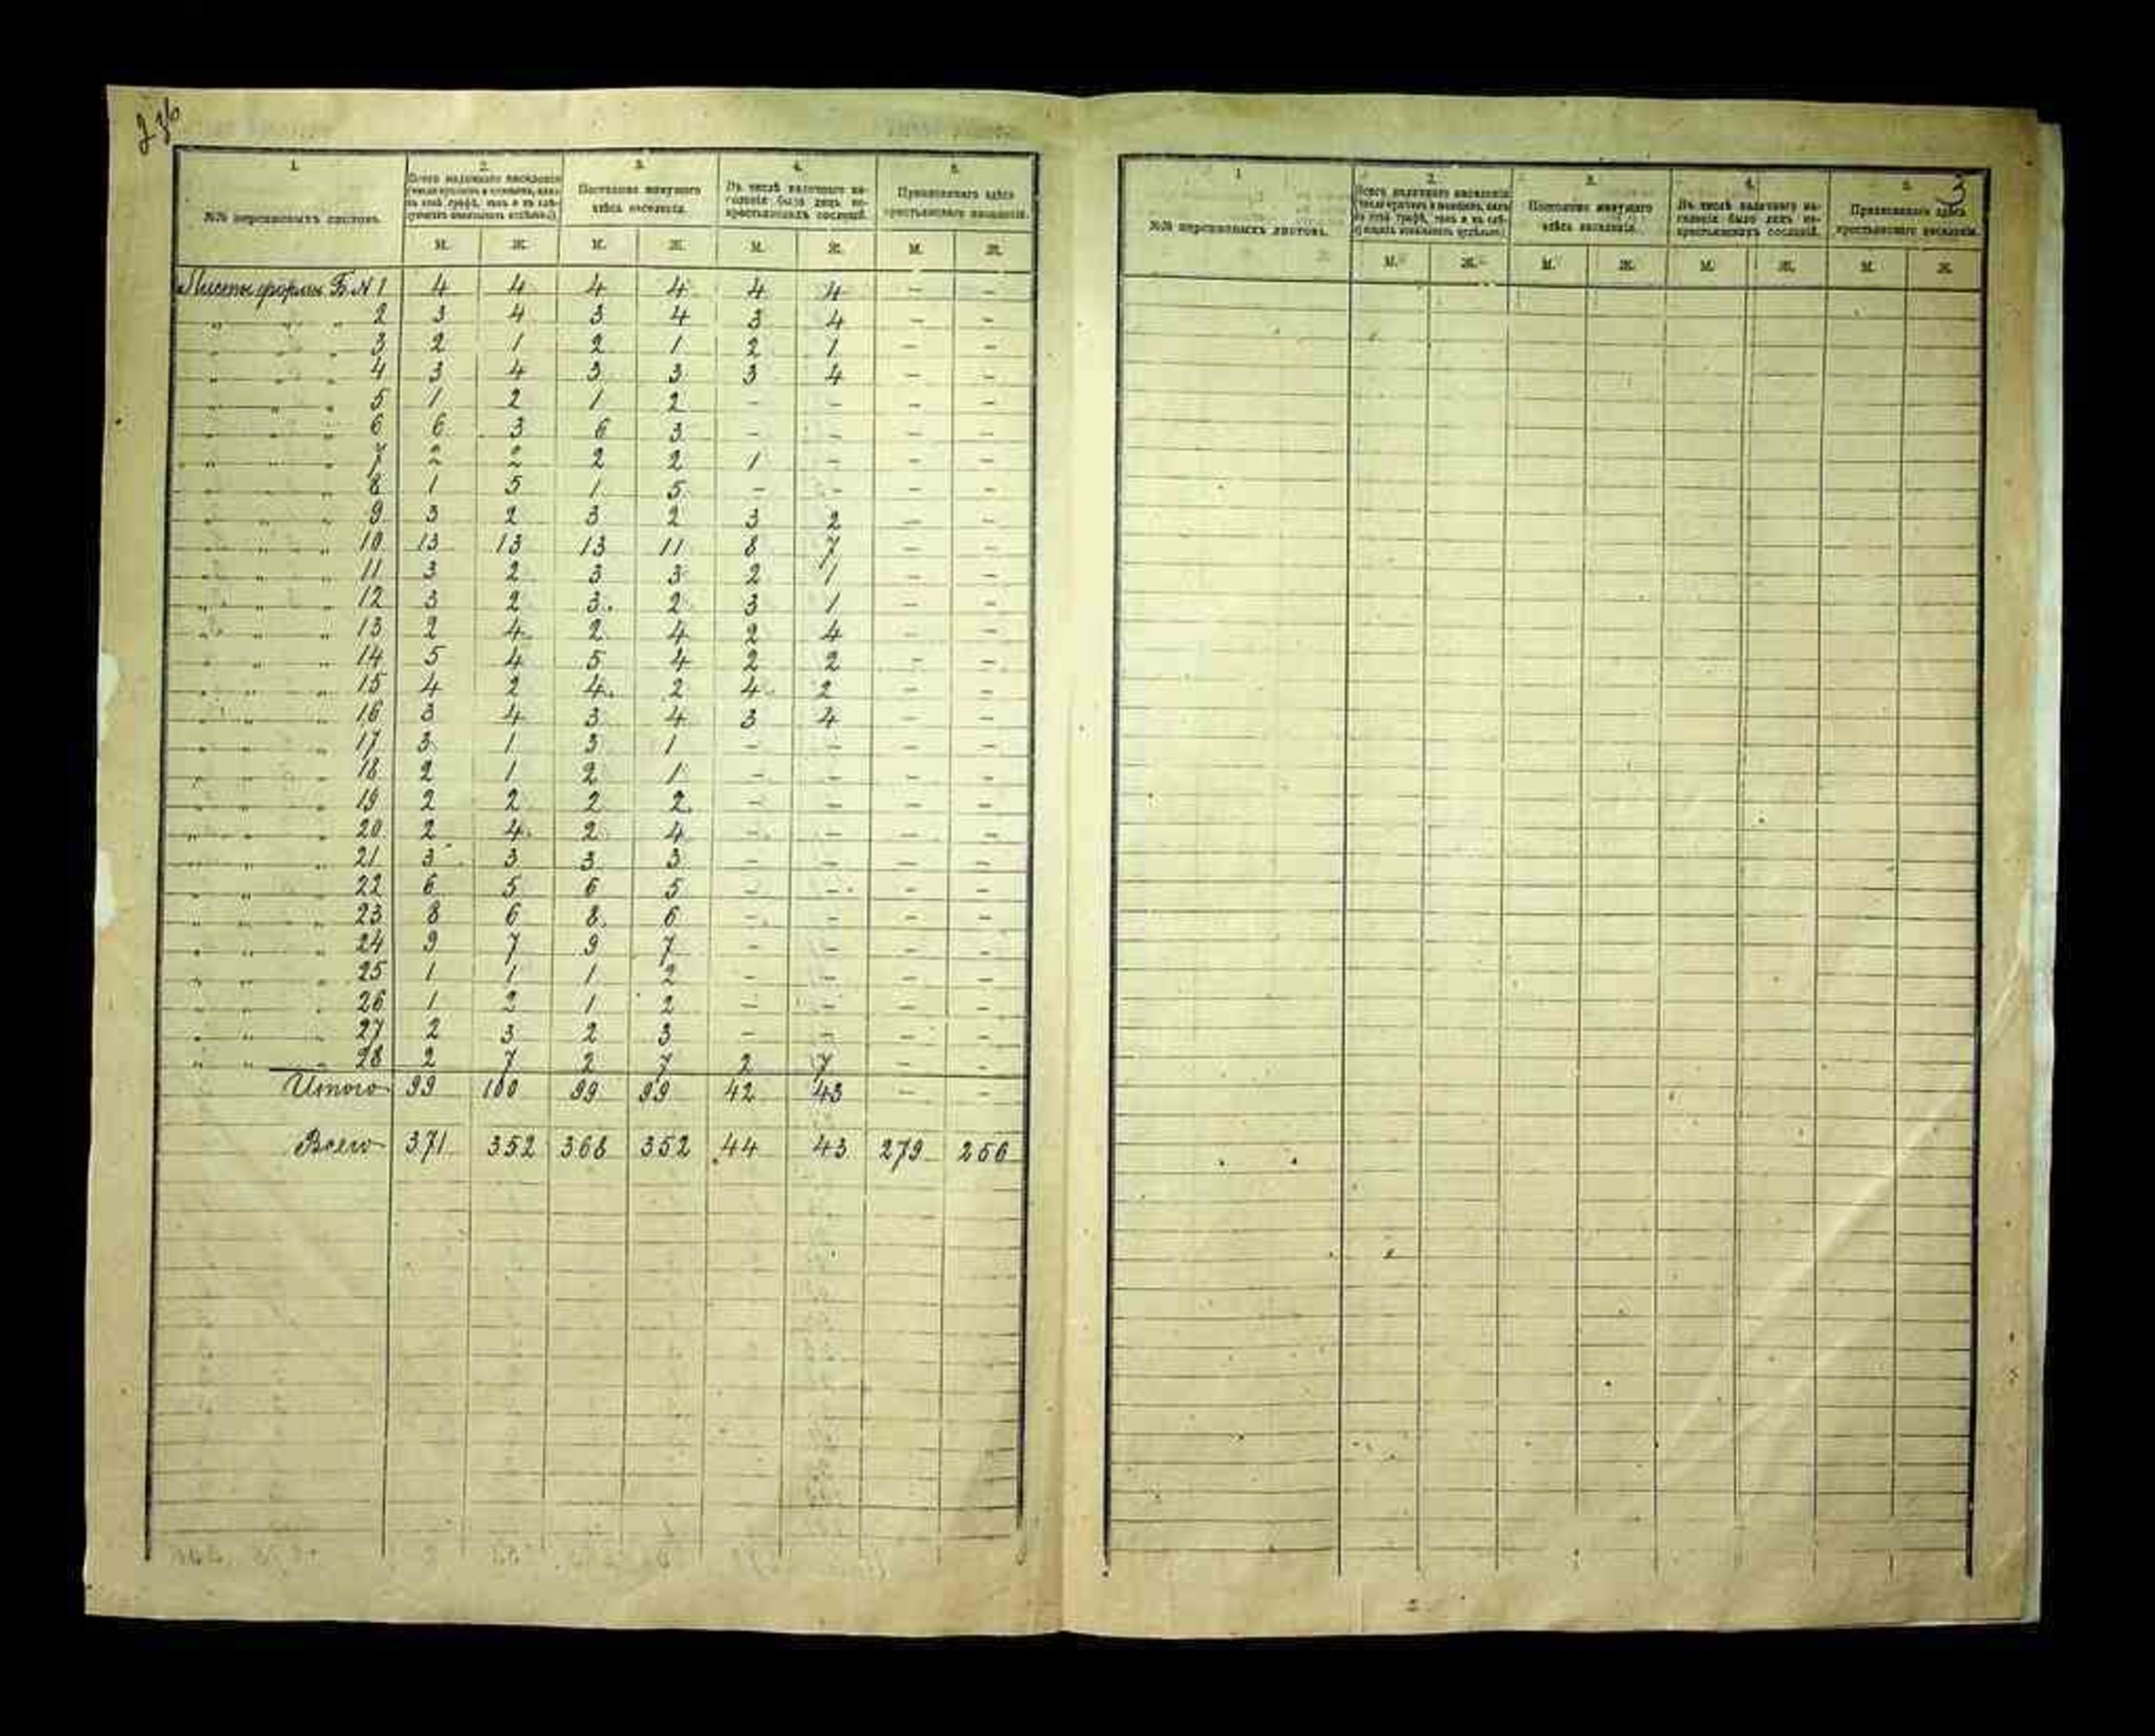 1. 2. 3. 4. 5.
№№ переписныхъ листовъ.
Всего наличнаго населенія
Постоянно живущаго здѣсь населенія.
Въ числѣ наличнаго населенія было лицъ некрестьянскихъ сословій.
Приписаннаго здѣсь крестьянскаго населенія.
М. Ж. М. Ж. М. Ж. М. Ж.
Листы формы Б. № 1 4 4 4 4 4 4 — —
„ „ „ 2 3 4 3 4 3 4 — —
„ „ „ 3 2 1 2 1 2 1 — —
„ „ „ 4 3 4 3 3 3 4 — —
„ „ „ 5 1 2 1 2 — — — —
„ „ „ 6 6 3 6 3 — — — —
„ „ „ 7 2 2 2 2 1 — — —
„ „ „ 8 1 5 1 5 — — — —
„ „ „ 9 3 2 3 2 3 2 — —
„ „ „ 10 13 13 13 11 8 7 — —
„ „ „ 11 3 2 3 3 2 1 — —
„ „ „ 12 3 2 3 2 3 1 — —
„ „ „ 13 2 4 2 4 2 4 — —
„ „ „ 14 5 4 5 4 2 2 — —
„ „ „ 15 4 2 4 2 4 2 — —
„ „ „ 16 3 4 3 4 3 4 — —
„ „ „ 17 3 1 3 1 — — — —
„ „ „ 18 2 1 2 1 — — — —
„ „ „ 19 2 2 2 2 — — — —
„ „ „ 20 2 4 2 4 — — — —
„ „ „ 21 3 3 3 3 — — — —
„ „ „ 22 6 5 6 5 — — — —
„ „ „ 23 8 6 8 6 — — — —
„ „ „ 24 9 7 9 7 — — — —
„ „ „ 25 1 1 1 2 — — — —
„ „ „ 26 1 2 1 2 — — — —
„ „ „ 27 2 3 2 3 — — — —
„ „ „ 28 2 7 2 7 2 7 — —
Итого 99 100 99 99 42 43 — —
Всего 371 352 368 352 44 43 279 256
3
1 2. 3. 4. 5.
№№ переписныхъ листовъ.
Всего наличнаго населенія
Постоянно живущаго здѣсь населенія.
Въ числѣ наличнаго населенія было лицъ некрестьянскихъ сословій.
Приписаннаго здѣсь крестьянскаго населенія.
М. Ж. М. Ж. М. Ж. М. Ж.